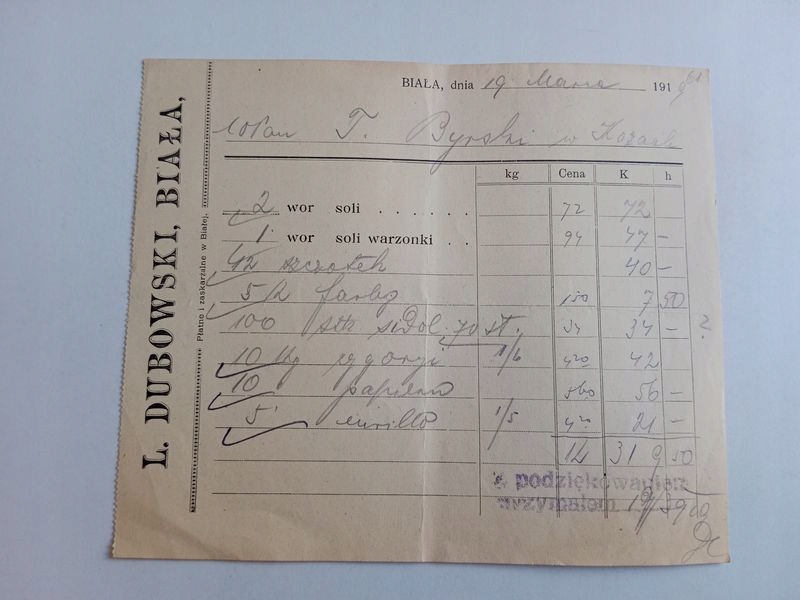 L. DUBOWSKI, BIAŁA,
Płatne i zaskarżalne w Białej.
BIAŁA, dnia 19 Marca 191
T. Byrski w Kozach
kg Cena K h
2 wor soli . . . . . . . 72 72
1 wor soli warzonki . . 94 47 –
42 szczotek 40 –
5 farby 150 7 50
100 sidol 70 st. 34 34 – ?
10 kg 1/6 420 42
10 papieru 560 56 –
5 1/5 420 21 –
31 9 50
Z podziękowaniem
otrzymałem